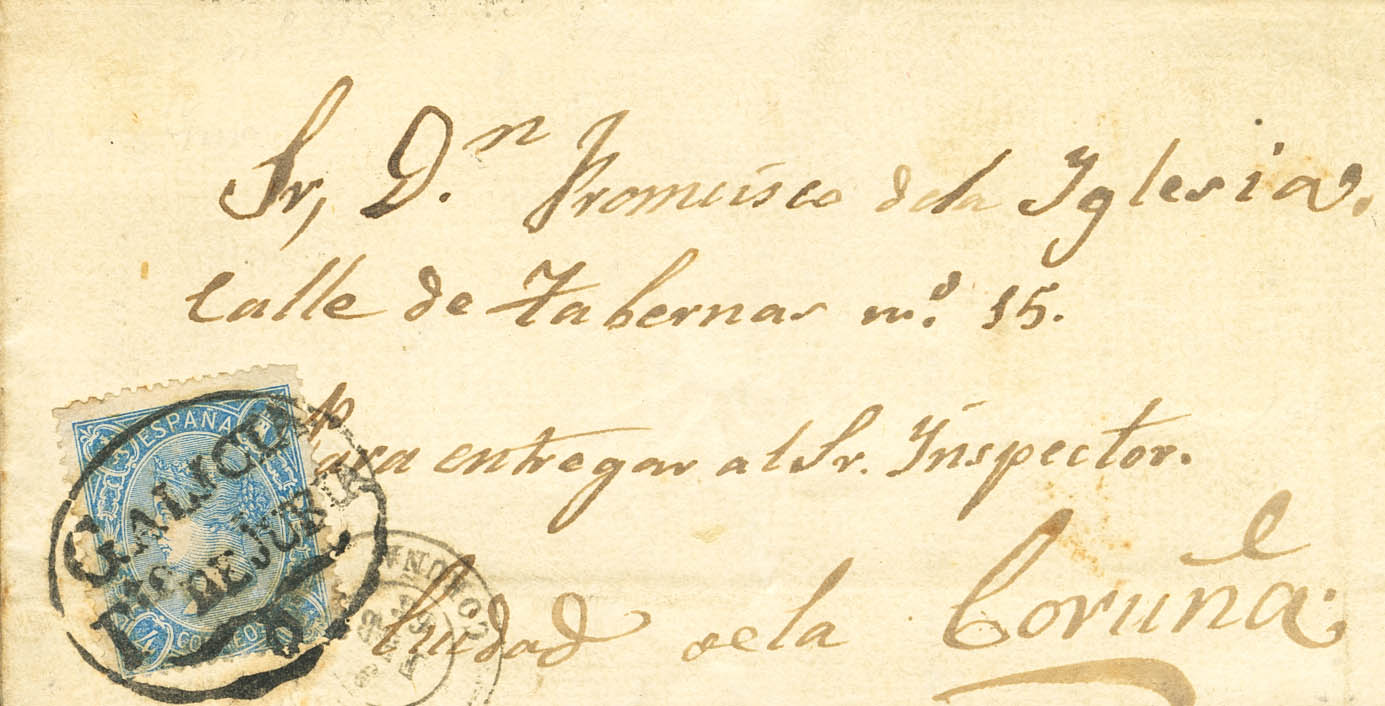 Sr, D.n Francisco dela Iglesia.
Calle de Tabernas nº. 15.
Para entregar al Sr. Ynspector.
Ciudad dela Coruña.
ESPAÑA
GALICIA
DE JUBIA
4
CORUÑA